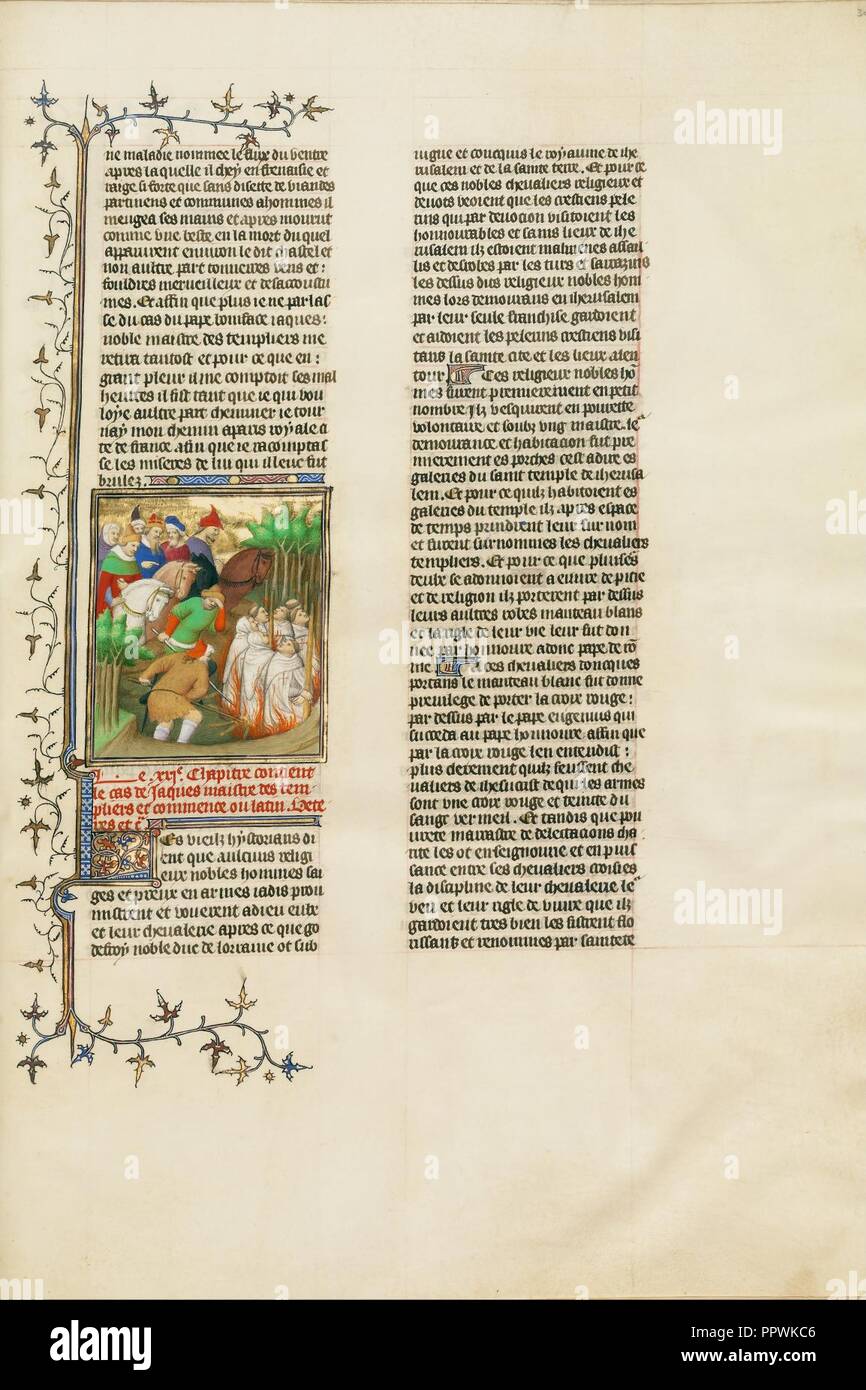 ne maladie nommee le flux du ventre
apres la quelle il chey en frenaisie et
raige si forte que sans disette de viandes
partinens et communes a hommes il
mengea ses mains et apres mourut
comme une beste en la mort du quel
apparurent environ le dit chastel et
non aultre part tonnerres vens et :
fouldres merveilleux et desaccoustu
mes. Et affin que plus ie ne parlas
se du cas du pape boniface iaques :
noble maistre des templiers me
retira tantost et pour ce que en :
grant pleur il me comptoit ses mal
heurtes il fist tant que ie qui vou
loye aultre part cheminer ie tour
nay mon chemin a paris royale ci
te de france afin que ie racomptas
se les miseres de lui qui illeuc fut
brulez.
e .xxi.e Chapitre contient
le cas de Jaques maistre des tem
pliers et commence ou latin. Vete
res et c.
Es vieilz hystorians di
ent que aulcuns religi
eux nobles hommes sai
ges et preux en armes iadis prou
mistrent et vouerent a dieu eulx
et leur chevalerie apres ce que go
defroy noble duc de lorraine ot sub
iugue et conquis le royaume de ihe
rusalem et de la sainte terre. Et pour ce
que ces nobles chevaliers religieux et
devots veoient que les crestiens pele
rins qui par devocion visitoient les
honnourables et sains lieux de ihe
rusalem ilz estoient malmenes assail
lis et desrobes par les turs et sarrazins
les dessus dits religieux nobles hom
mes lors demourans en iherusalem
par leur seule franchise gardoient
et aidoient les pelerins crestiens visi
tans la sainte cite et les lieux alen
tour. Ces religieux nobles hō
mes furent premierement en petit
nombre ilz vesquirent en povrette
volontaire et soubz ung maistre. le
demourance et habitacion fut pre
mierement es porches cest a dire es
galeries du saint temple de iherusa
lem. Et pour ce quilz habitoient es
galeries du temple ilz apres espace
de temps prindrent leur sur nom
et furent surnommes les chevaliers
templiers. Et pour ce que pluisers
deulx se adonnoient a euvre de pitie
et de religion ilz porterent par dessus
leurs aultres robes manteau blans
et la rigle de leur vie leur fut don
nee par honnoure adonc pape de rō
me A ces chevaliers doncques
portans le manteau blanc fut donne
previlege de porter la croix rouge :
par dessus par le pape eugenius qui
succeda au pape honnoure affin que
par la croix rouge len entendist :
plus clerement quilz feussent che
valiers de ihesucrist de qui les armes
sont une croix rouge et teinte du
sang vermeil. Et tandis que pou
vrete marrastre de delectacions cha
rite les ot enseignoune et en puis
sance entre ses chevaliers croisies
la discipline de leur chevalerie le
veu et leur rigle de vivre que ilz
gardoient tres bien les fistrent flo
rissans et renommes par saintete
a alamy
alamy
Image ID: PPWKC6
www.alamy.com